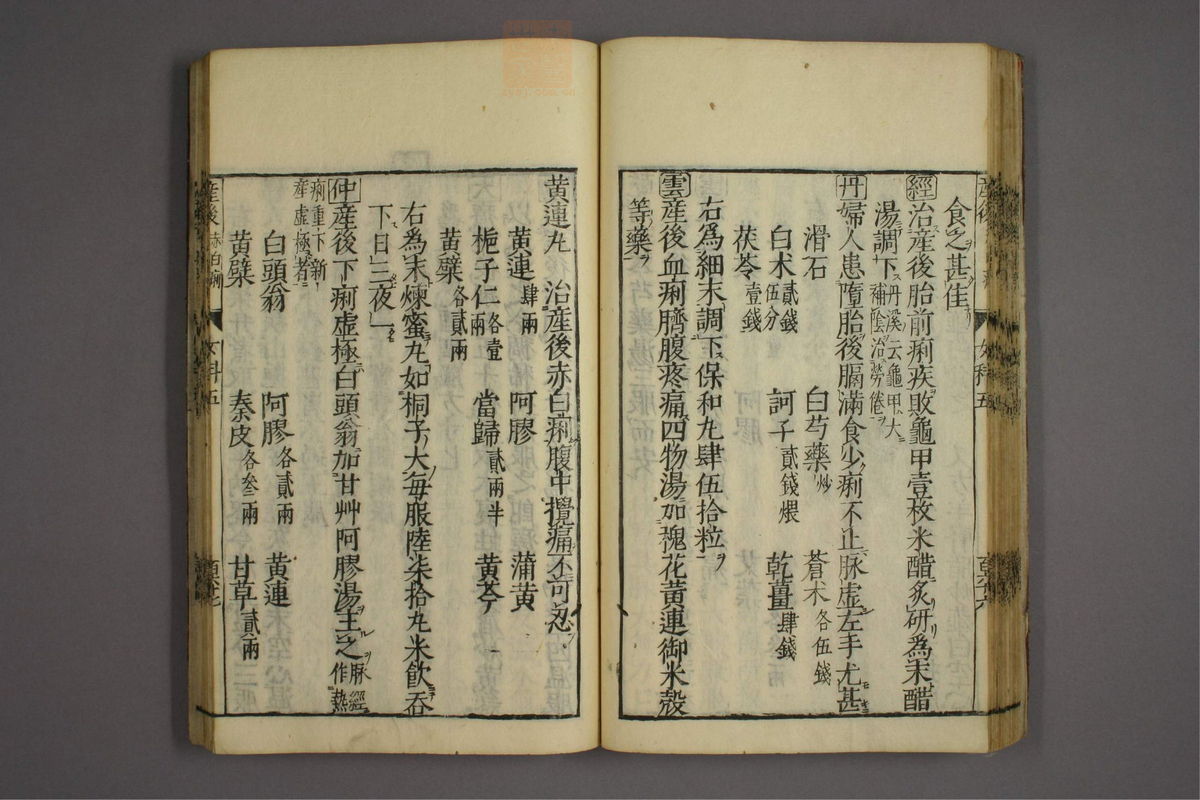 食之甚佳
經治産後胎前痢疾敗龜甲壹枚米醋炙研爲末醋
湯調下丹溪云龜甲大補陰治勞倦
丹婦人患墮胎後膈滿食少痢不止脉虚左手尤甚
滑石 白芍藥炒 蒼朮各伍錢
白朮貳錢伍分 訶子貳錢煨 乾薑肆錢
茯苓壹錢
右爲細末調下保和丸肆伍拾粒
雲産後血痢臍腹疼痛四物湯加槐花黄連御米殻
等藥
女科五
黄連丸 治産後赤白痢腹中攪痛不可忍
黄連肆兩 阿膠 蒲黄
梔子仁各壹兩 當歸貳兩半 黄芩
黄蘗各貳兩
右爲末煉蜜丸如桐子大毎服陸柒拾丸米飮吞
下日三夜一
仲産後下痢虚極白頭翁加甘艸阿膠湯主之脉經作熱
痢重下新産虚極者
白頭翁 阿膠各貳兩 黄連
黄蘗 秦皮各叁兩 甘草貳兩
産後 赤白痢 女科五